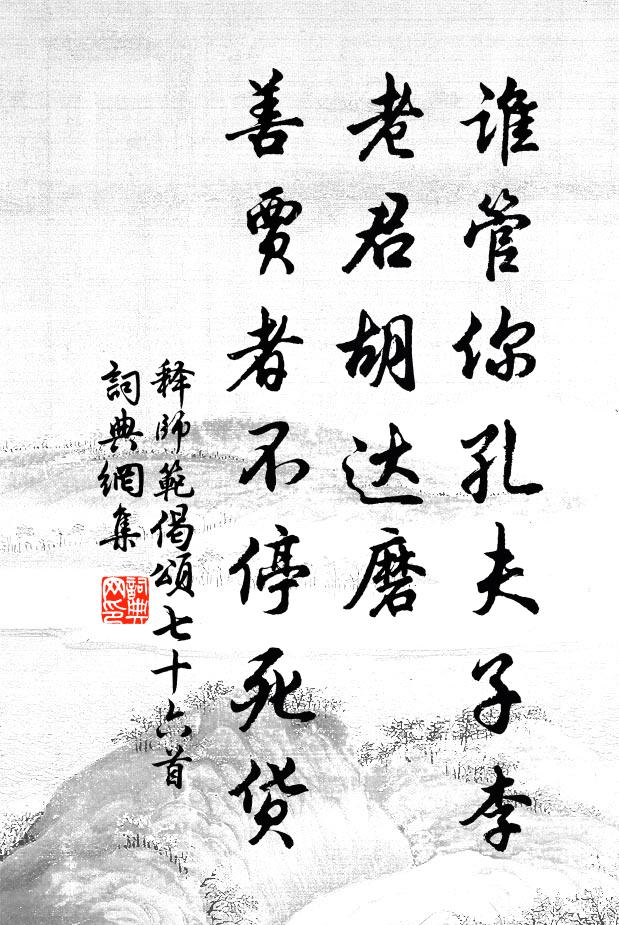 谁管你孔夫子李
老君胡达磨
善贾者不停死货
释師範偈頌七十六首
詞典網集
詞典網印